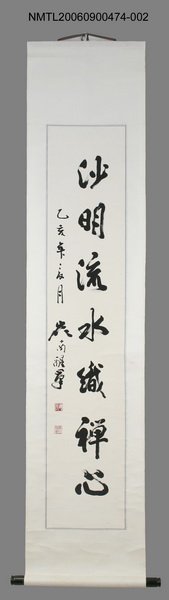 NMTL20060900474-002
沙明流水織禪心
乙亥年二月